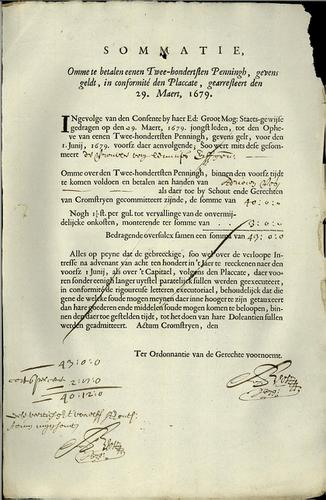 SOMMATIE,
Omme te betalen eenen Twee-hondertsten Penningh, gevens
geldt, in conformité den Placcate, gearresteert den
29. Maert, 1679.
INgevolge van den Consente by haer Ed: Groot Mog: Staets-gewijse
gedragen op den 29. Maert, 1679. jongstleden, tot den Ophe-
ve van eenen Twee-hondertsten Penningh, gevens gelt, voor den
1. Junij, 1679. voorsz daer aenvolgende; Soo wert mits dese gesom-
meert
Omme over den Twee-hondertsten Penningh, binnen den voorsz tijdt
te komen voldoen en betalen aen handen van
als daer toe by Schout ende Gerechten
van Cromstryen gecommitteert zijnde, de somme van 40:0:0
Nogh 1½ st. per gul. tot vervallinge van de onvermij-
delijcke onkosten, monterende ter somme van 3:0:0
Bedragende oversulcx samen een somma van 43:0:0
Alles op peyne dat de gebreckige, soo wel over de verloope In-
tresse na advenant van acht ten hondert in 't Jaer te reeckenen naer den
voorsz 1 Junij, als over 't Capitael, volgens den Placcate, daer voo-
ren sonder eenigh langer uytstel paratelijck sullen werden geexecuteert,
in conformité de rigoureuse letteren executoriael, behoudelijck dat die
gene de welcke soude mogen meynen daer inne hooger te zijn getauxeert
dan hare goederen den middelen soude mogen komen te beloopen, bin-
nen den daer toe gestelden tijdt, tot het doen van hare Doleantien sullen
werden geadmitteert. Actum Cromstryen, den
Ter Ordonnantie van de Gerechte voornoemt.
43:0:0
40:12:0